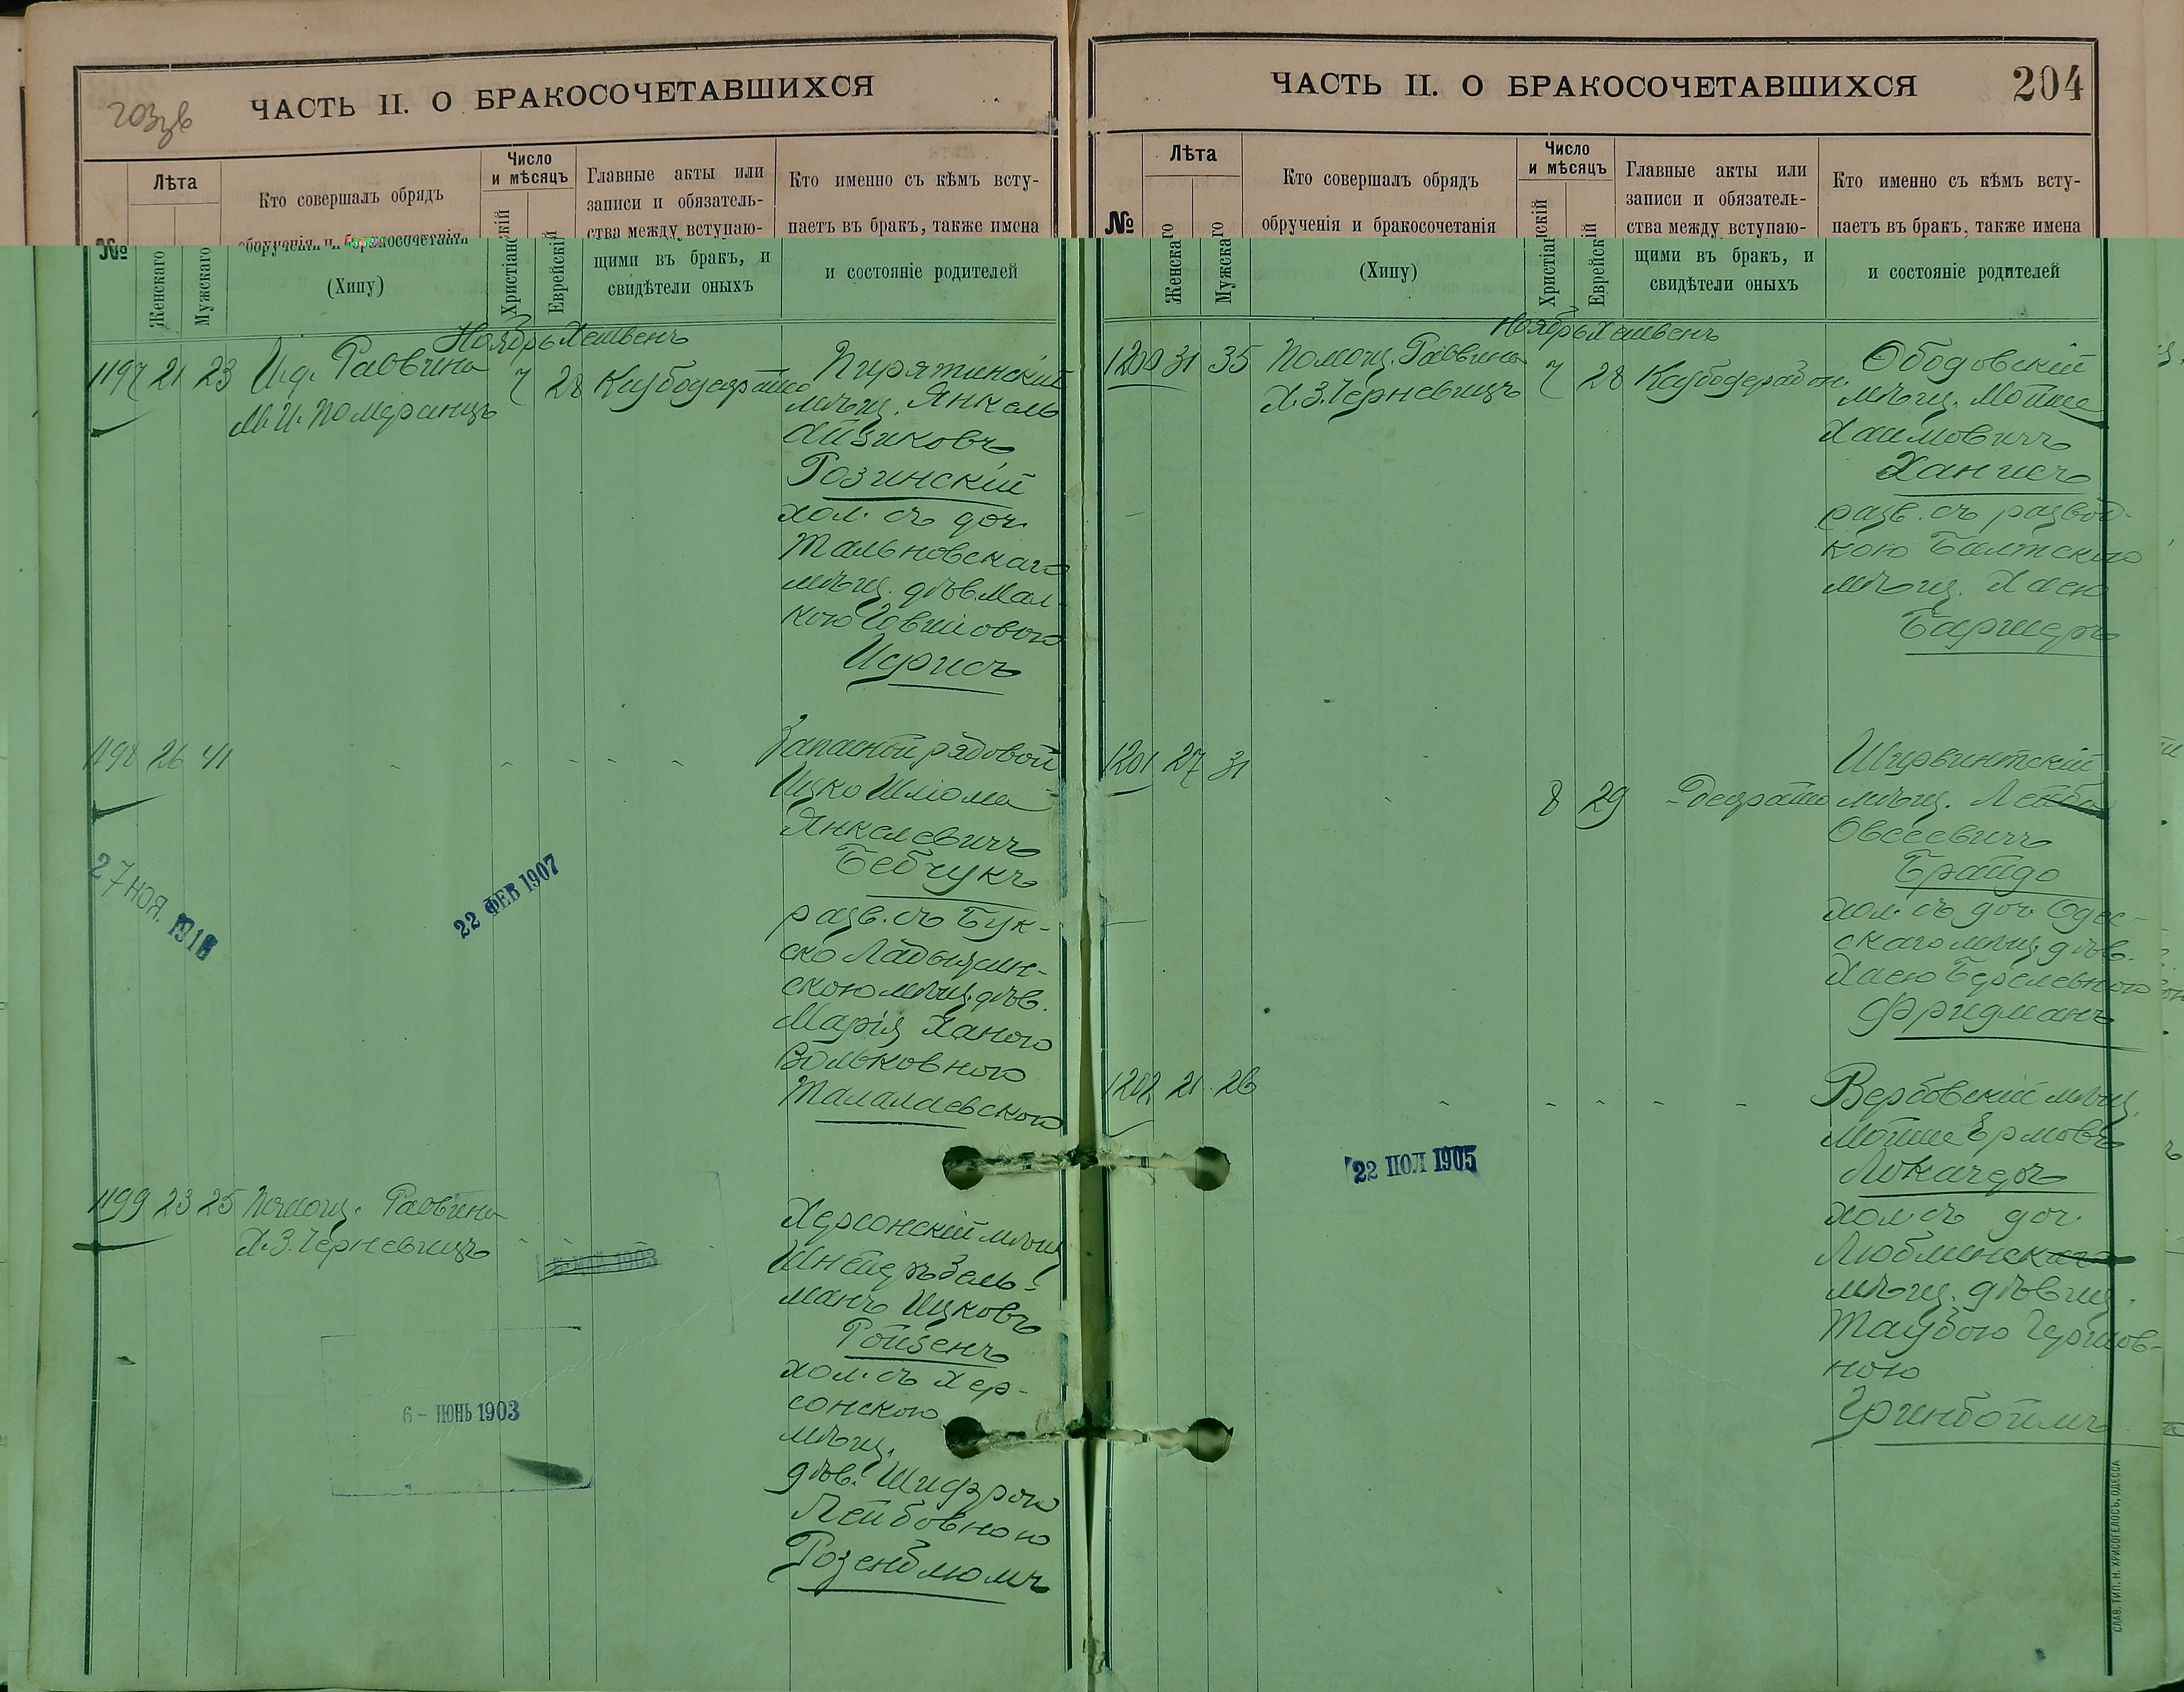 ЧАСТЬ II. О БРАКОСОЧЕТАВШИХСЯ
№
Лѣта
Женскаго
Мужскаго
Кто совершалъ обрядъ
обрученія и бракосочетанія
(Хипу)
Число
и мѣсяцъ
Христіанскій
Еврейскій
Главные акты или
записи и обязатель-
ства между вступаю-
щими въ бракъ, и
свидѣтели оныхъ
Кто именно съ кѣмъ всту-
паетъ въ бракъ, также имена
и состояніе родителей
Ноябрь Хешвенъ
1197 21 23 И.д. Раввина 7 28
М. И. Померанцъ
Пирятинскій
мѣщ. Янкель
Айзиковъ
Розинскій
хол. съ доч.
Тальновскаго
мѣщ. дѣв. Мал-
кою
Ицрисъ
1198 26 41
Запасной рядовой
Ицко Шліома
Янкелевичъ
Бебчукъ
разв. съ Бук-
ско Ладыжин-
скою мѣщ. дѣв.
Марія Ханою
Вольковною
Талалаевскою
27 НОЯ.
22 ФЕВ 1907
1199 23 25 Помощ. Раввина
Х.З. Черневицъ
Херсонскій мѣщ.
Шнеерь Зель-
манъ Ицковъ
Ройзенъ
хол. съ Хер-
сонскою
мѣщ.
дѣв. Шифрою
Лейбовною
Розенблюмъ
1903
6 - ІЮНЬ 1903
ЧАСТЬ II. О БРАКОСОЧЕТАВШИХСЯ
204
№
Лѣта
Женскаго
Мужскаго
Кто совершалъ обрядъ
обрученія и бракосочетанія
(Хипу)
Число
и мѣсяцъ
Христіанскій
Еврейскій
Главные акты или
записи и обязатель-
ства между вступаю-
щими въ бракъ, и
свидѣтели оныхъ
Кто именно съ кѣмъ всту-
паетъ въ бракъ, также имена
и состояніе родителей
Ноябрь Хешвенъ
1200 31 35 Помощ. Раввина 7 28
Х.З. Черневицъ
Ободовскій
мѣщ. Мойше
Хаимовичъ
Ханисъ
разв. съ развод-
кою Балтскою
мѣщ. Хаею
Баршеръ
1201 27 31
8 29
Ширвинтскій
мѣщ. Лейба
Овсеевичъ
Брайдо
хол. съ доч. Одес-
скаго мѣщ. дѣв.
Хаею Берелевною
Фридманъ
1202 21 26
Вербовскій мѣщ.
Мойше Ермовъ
Локачеръ
хол. съ доч.
Люблинскаго
мѣщ. дѣвиц.
Таубою Гершов-
ною
Гринбоймъ
22 ІЮЛ 1905
СЛАВ. ТИП. Н. ХРИСОГЕЛОСЪ, ОДЕССА